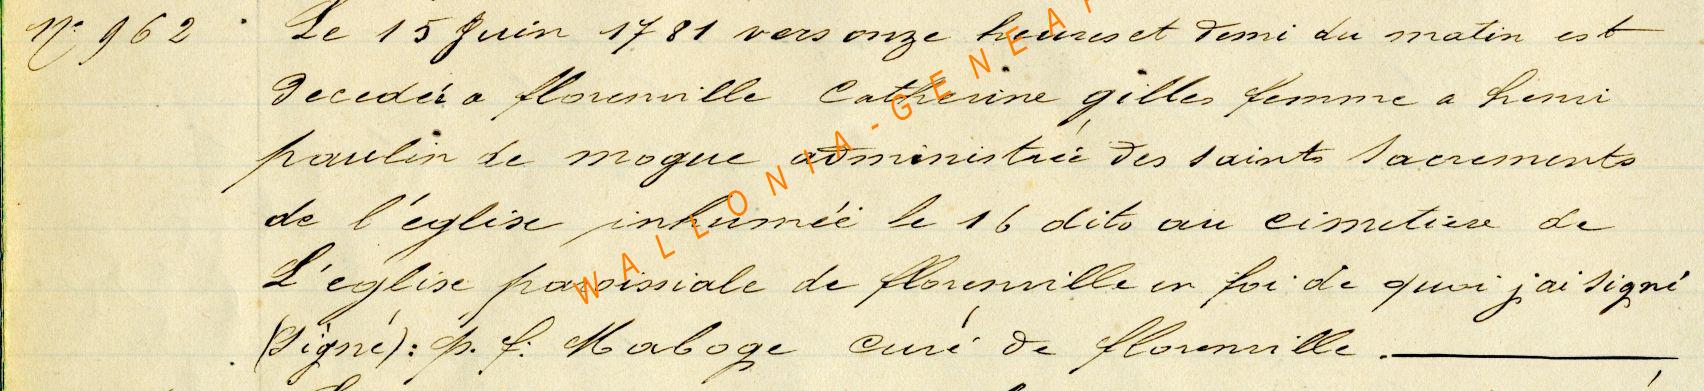 N° 962 Le 15 Juin 1781 vers onze heures et demi du matin est
decedéé a florenville Catherine gilles femme a henri
paulin de mogue administréé des saints Sacrements
de l'église inhuméé le 16 dito au cimetiere de
L'église paroissiale de florenville en foi de quoi j'ai signé
(signé): p. f. Maboge curé de florenville.
WALLONIA-GENEA